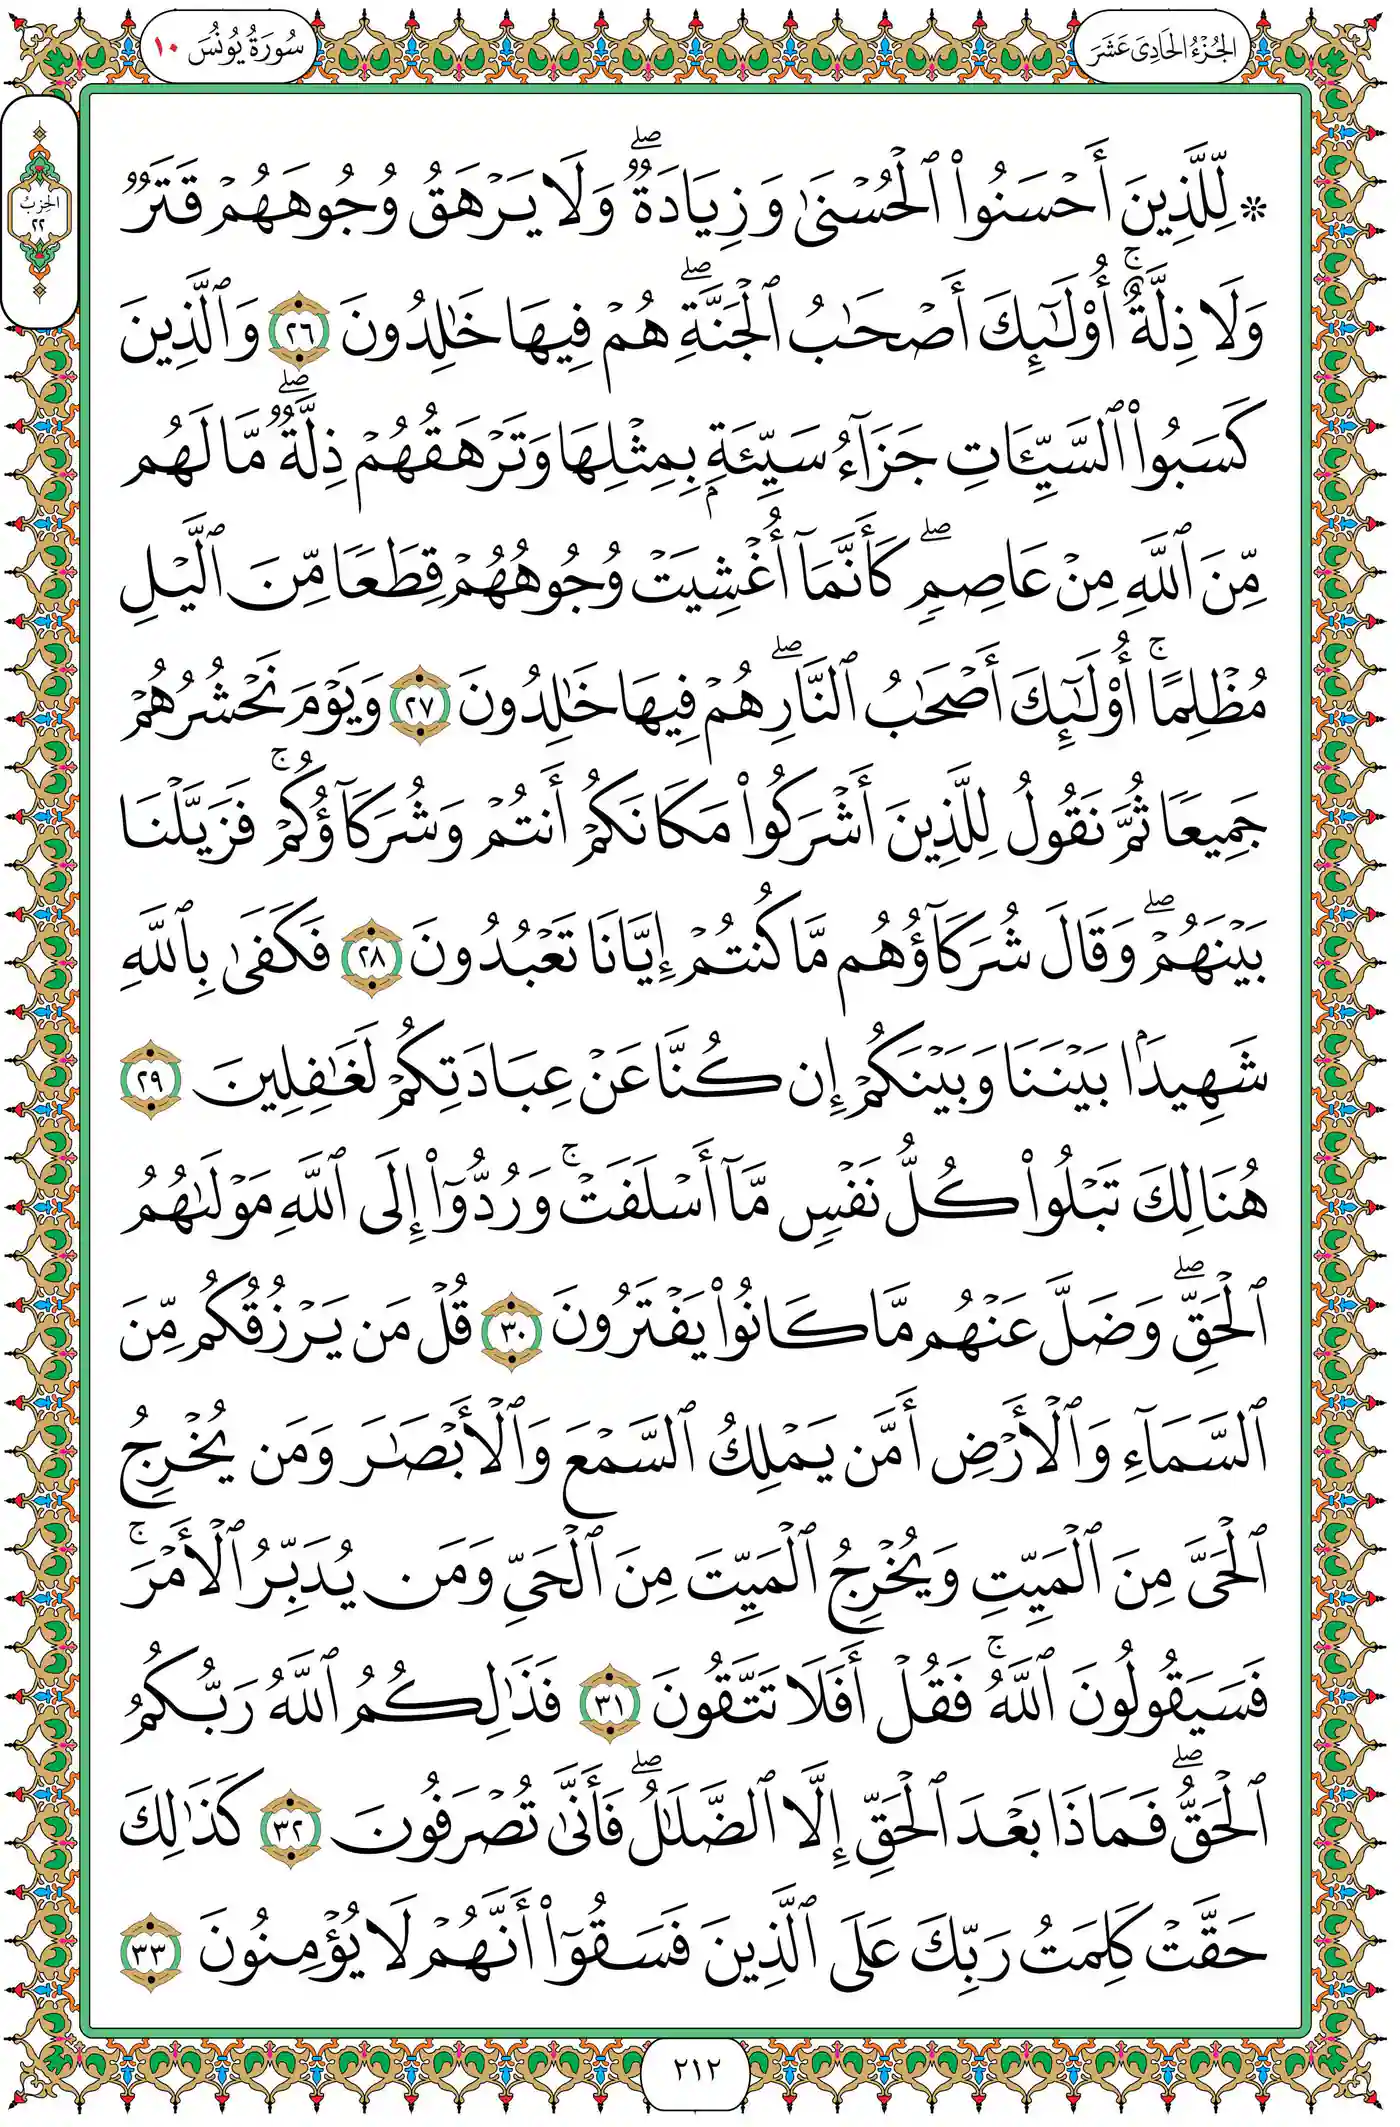 الجُزْءُ الحَادِى عَشَرَ
سُورَةُ يُونُسَ ١٠
الحِزْبُ
٢٢
۞ لِّلَّذِينَ أَحْسَنُوا۟ ٱلْحُسْنَىٰ وَزِيَادَةٌۖ وَلَا يَرْهَقُ وُجُوهَهُمْ قَتَرٌ
وَلَا ذِلَّةٌۚ أُو۟لَٰٓئِكَ أَصْحَٰبُ ٱلْجَنَّةِۖ هُمْ فِيهَا خَٰلِدُونَ ٢٦ وَٱلَّذِينَ
كَسَبُوا۟ ٱلسَّيِّـَٔاتِ جَزَآءُ سَيِّئَةٍۭ بِمِثْلِهَا وَتَرْهَقُهُمْ ذِلَّةٌۖ مَّا لَهُم
مِّنَ ٱللَّهِ مِنْ عَاصِمٍۖ كَأَنَّمَآ أُغْشِيَتْ وُجُوهُهُمْ قِطَعًا مِّنَ ٱلَّيْلِ
مُظْلِمًاۚ أُو۟لَٰٓئِكَ أَصْحَٰبُ ٱلنَّارِۖ هُمْ فِيهَا خَٰلِدُونَ ٢٧ وَيَوْمَ نَحْشُرُهُمْ
جَمِيعًا ثُمَّ نَقُولُ لِلَّذِينَ أَشْرَكُوا۟ مَكَانَكُمْ أَنتُمْ وَشُرَكَآؤُكُمْۚ فَزَيَّلْنَا
بَيْنَهُمْۖ وَقَالَ شُرَكَآؤُهُم مَّا كُنتُمْ إِيَّانَا تَعْبُدُونَ ٢٨ فَكَفَىٰ بِٱللَّهِ
شَهِيدًۢا بَيْنَنَا وَبَيْنَكُمْ إِن كُنَّا عَنْ عِبَادَتِكُمْ لَغَٰفِلِينَ ٢٩
هُنَالِكَ تَبْلُوا۟ كُلُّ نَفْسٍ مَّآ أَسْلَفَتْۚ وَرُدُّوٓا۟ إِلَى ٱللَّهِ مَوْلَىٰهُمُ
ٱلْحَقِّۖ وَضَلَّ عَنْهُم مَّا كَانُوا۟ يَفْتَرُونَ ٣٠ قُلْ مَن يَرْزُقُكُم مِّنَ
ٱلسَّمَآءِ وَٱلْأَرْضِ أَمَّن يَمْلِكُ ٱلسَّمْعَ وَٱلْأَبْصَٰرَ وَمَن يُخْرِجُ
ٱلْحَىَّ مِنَ ٱلْمَيِّتِ وَيُخْرِجُ ٱلْمَيِّتَ مِنَ ٱلْحَىِّ وَمَن يُدَبِّرُ ٱلْأَمْرَۚ
فَسَيَقُولُونَ ٱللَّهُۚ فَقُلْ أَفَلَا تَتَّقُونَ ٣١ فَذَٰلِكُمُ ٱللَّهُ رَبُّكُمُ
ٱلْحَقُّۖ فَمَاذَا بَعْدَ ٱلْحَقِّ إِلَّا ٱلضَّلَٰلُۖ فَأَنَّىٰ تُصْرَفُونَ ٣٢ كَذَٰلِكَ
حَقَّتْ كَلِمَتُ رَبِّكَ عَلَى ٱلَّذِينَ فَسَقُوٓا۟ أَنَّهُمْ لَا يُؤْمِنُونَ ٣٣
٢١٢